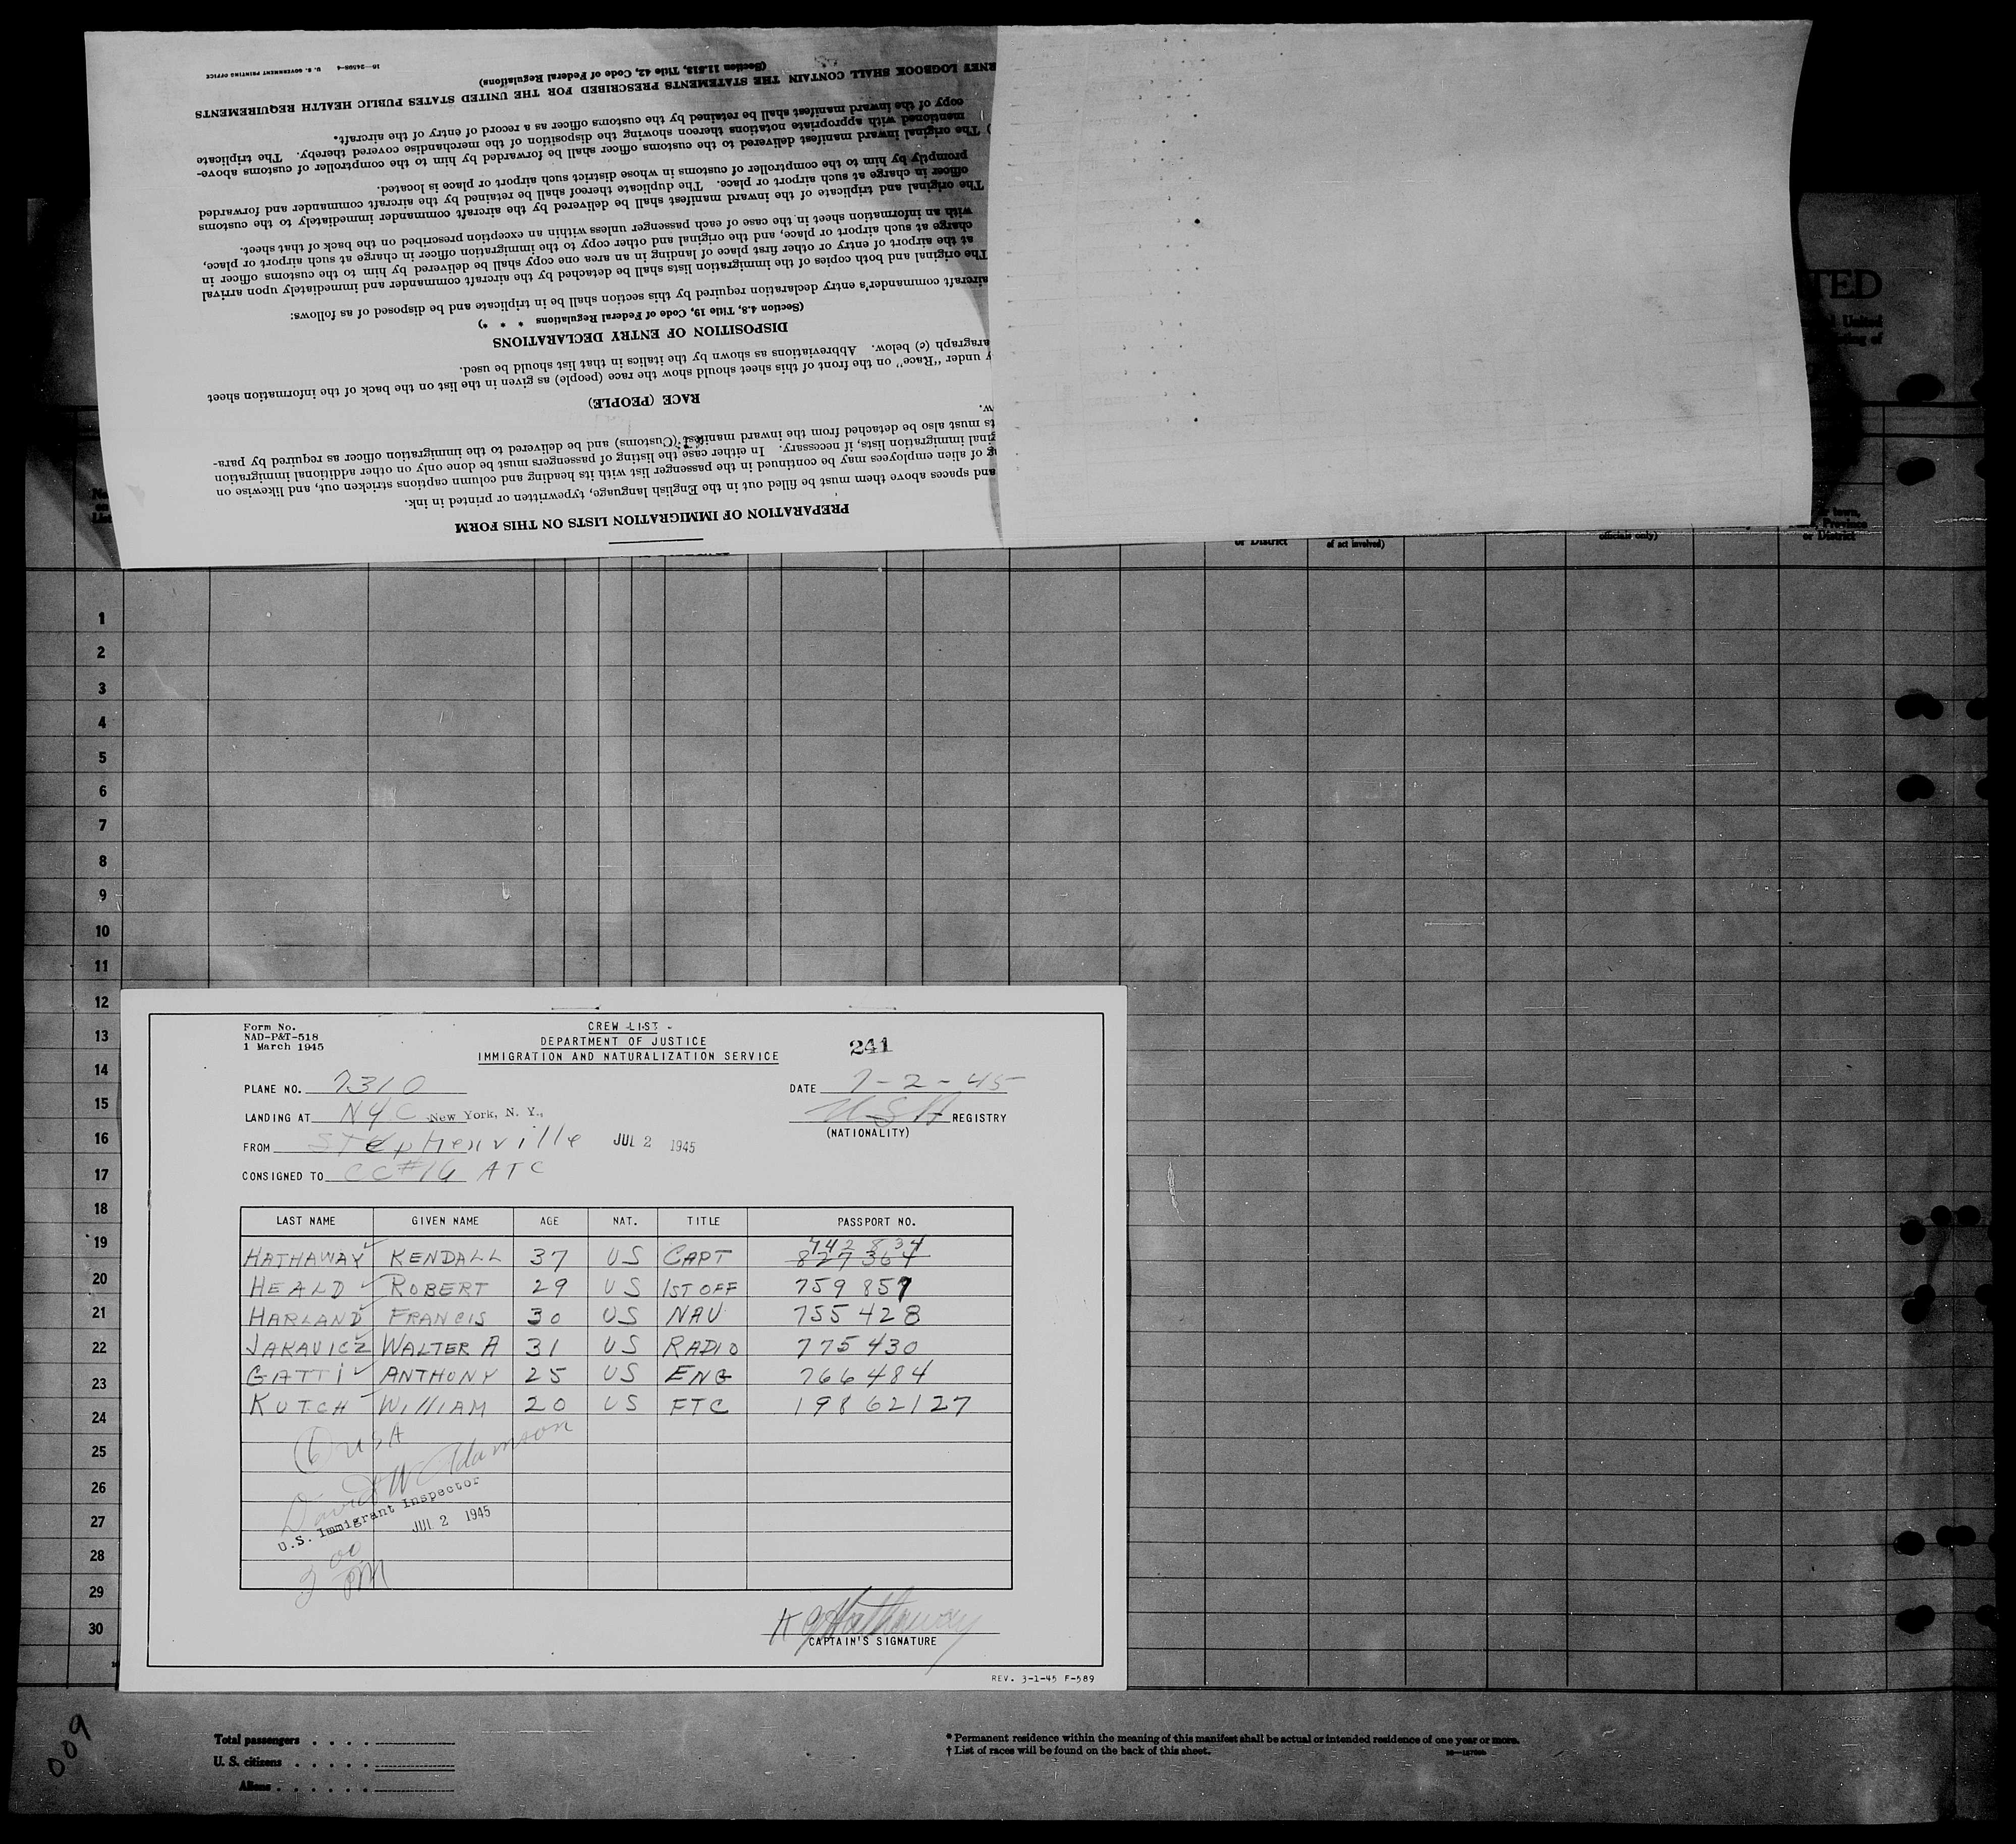 16—24598-4 U. S. GOVERNMENT PRINTING OFFICE
(Section 11.513, Title 42, Code of Federal Regulations)
LOGBOOK SHALL CONTAIN THE STATEMENTS PRESCRIBED FOR THE UNITED STATES PUBLIC HEALTH REQUIREMENTS
copy of the inward manifest shall be retained by the customs officer as a record of entry of the aircraft.
mentioned with appropriate notations thereon showing the disposition of the merchandise covered thereby. The triplicate
The original inward manifest delivered to the customs officer shall be forwarded by him to the comptroller of customs above-
promptly by him to the comptroller of customs in whose district such airport or place is located.
officer in charge at such airport or place. The duplicate thereof shall be retained by the aircraft commander and forwarded
The original and triplicate of the inward manifest shall be delivered by the aircraft commander immediately to the customs
with an information sheet in the case of each passenger unless within an exception prescribed on the back of that sheet.
charge at such airport or place, and the original and other copy to the immigration officer in charge at such airport or place,
at the airport of entry or other first place of landing in an area one copy shall be delivered by him to the customs officer in
The original and both copies of the immigration lists shall be detached by the aircraft commander and immediately upon arrival
aircraft commander's entry declaration required by this section shall be in triplicate and be disposed of as follows:
(Section 4.8, Title 19, Code of Federal Regulations * * *)
DISPOSITION OF ENTRY DECLARATIONS
aragraph (c) below. Abbreviations as shown by the italics in that list should be used.
y under "Race" on the front of this sheet should show the race (people) as given in the list on the back of the information sheet
RACE (PEOPLE)
w.
ts must also be detached from the inward manifest (Customs) and be delivered to the immigration officer as required by para-
ginal immigration lists, if necessary. In either case the listing of passengers must be done only on other additional immigration
g of alien employees may be continued in the passenger list with its heading and column captions stricken out, and likewise on
and spaces above them must be filled out in the English language, typewritten or printed in ink.
PREPARATION OF IMMIGRATION LISTS ON THIS FORM
TED
United
of
town,
Province
or District
or District
of act involved)
officials only)
1
2
3
4
5
6
7
8
9
10
11
12
13
14
15
16
17
18
19
20
21
22
23
24
25
26
27
28
29
30
Form No.
NAD-P&T-518
1 March 1945
CREW LIST -
DEPARTMENT OF JUSTICE
IMMIGRATION AND NATURALIZATION SERVICE
241
PLANE NO. 7310
DATE 7-2-45
LANDING AT NYC New York, N. Y.,
USA REGISTRY
(NATIONALITY)
FROM STephenville JUL 2 1945
CONSIGNED TO CC#16 ATC
LAST NAME GIVEN NAME AGE NAT. TITLE PASSPORT NO.
442 834
HATHAWAY KENDALL 37 US CAPT 827 364
HEALD ROBERT 29 US 1ST OFF 759 857
HARLAND FRANCIS 30 US NAV 755 428
JAKAVICZ WALTER A 31 US RADIO 775 430
GATTI ANTHONY 25 US ENG 766484
KUTCH WILLIAM 20 US FTC 19862127
(6) USA
David W Adamson
U.S. Immigrant Inspector
JUL 2 1945
2 00 PM
K G Hathaway
CAPTAIN'S SIGNATURE
REV. 3-1-45 F-589
009
Total passengers . . . .
U. S. citizens . . . . .
Aliens . . . . . .
* Permanent residence within the meaning of this manifest shall be actual or intended residence of one year or more.
† List of races will be found on the back of this sheet.